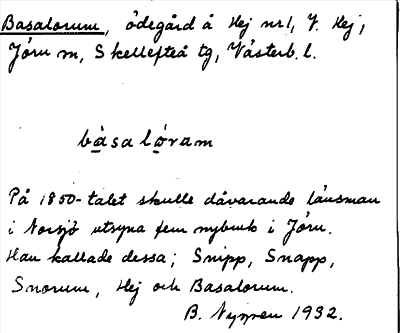 Basalorum, ödegård å Hej nr 1, V. Hej,
Jörn sn, Skellefteå tg, Västerb. l.
bàsalòram
På 1850-talet skulle dåvarande länsman
i Norsjö utsyna fem nybruk i Jörn.
Han kallade dessa; Snipp, Snapp,
Snorum, Hej och Basalorum.
B. Nygren 1932.